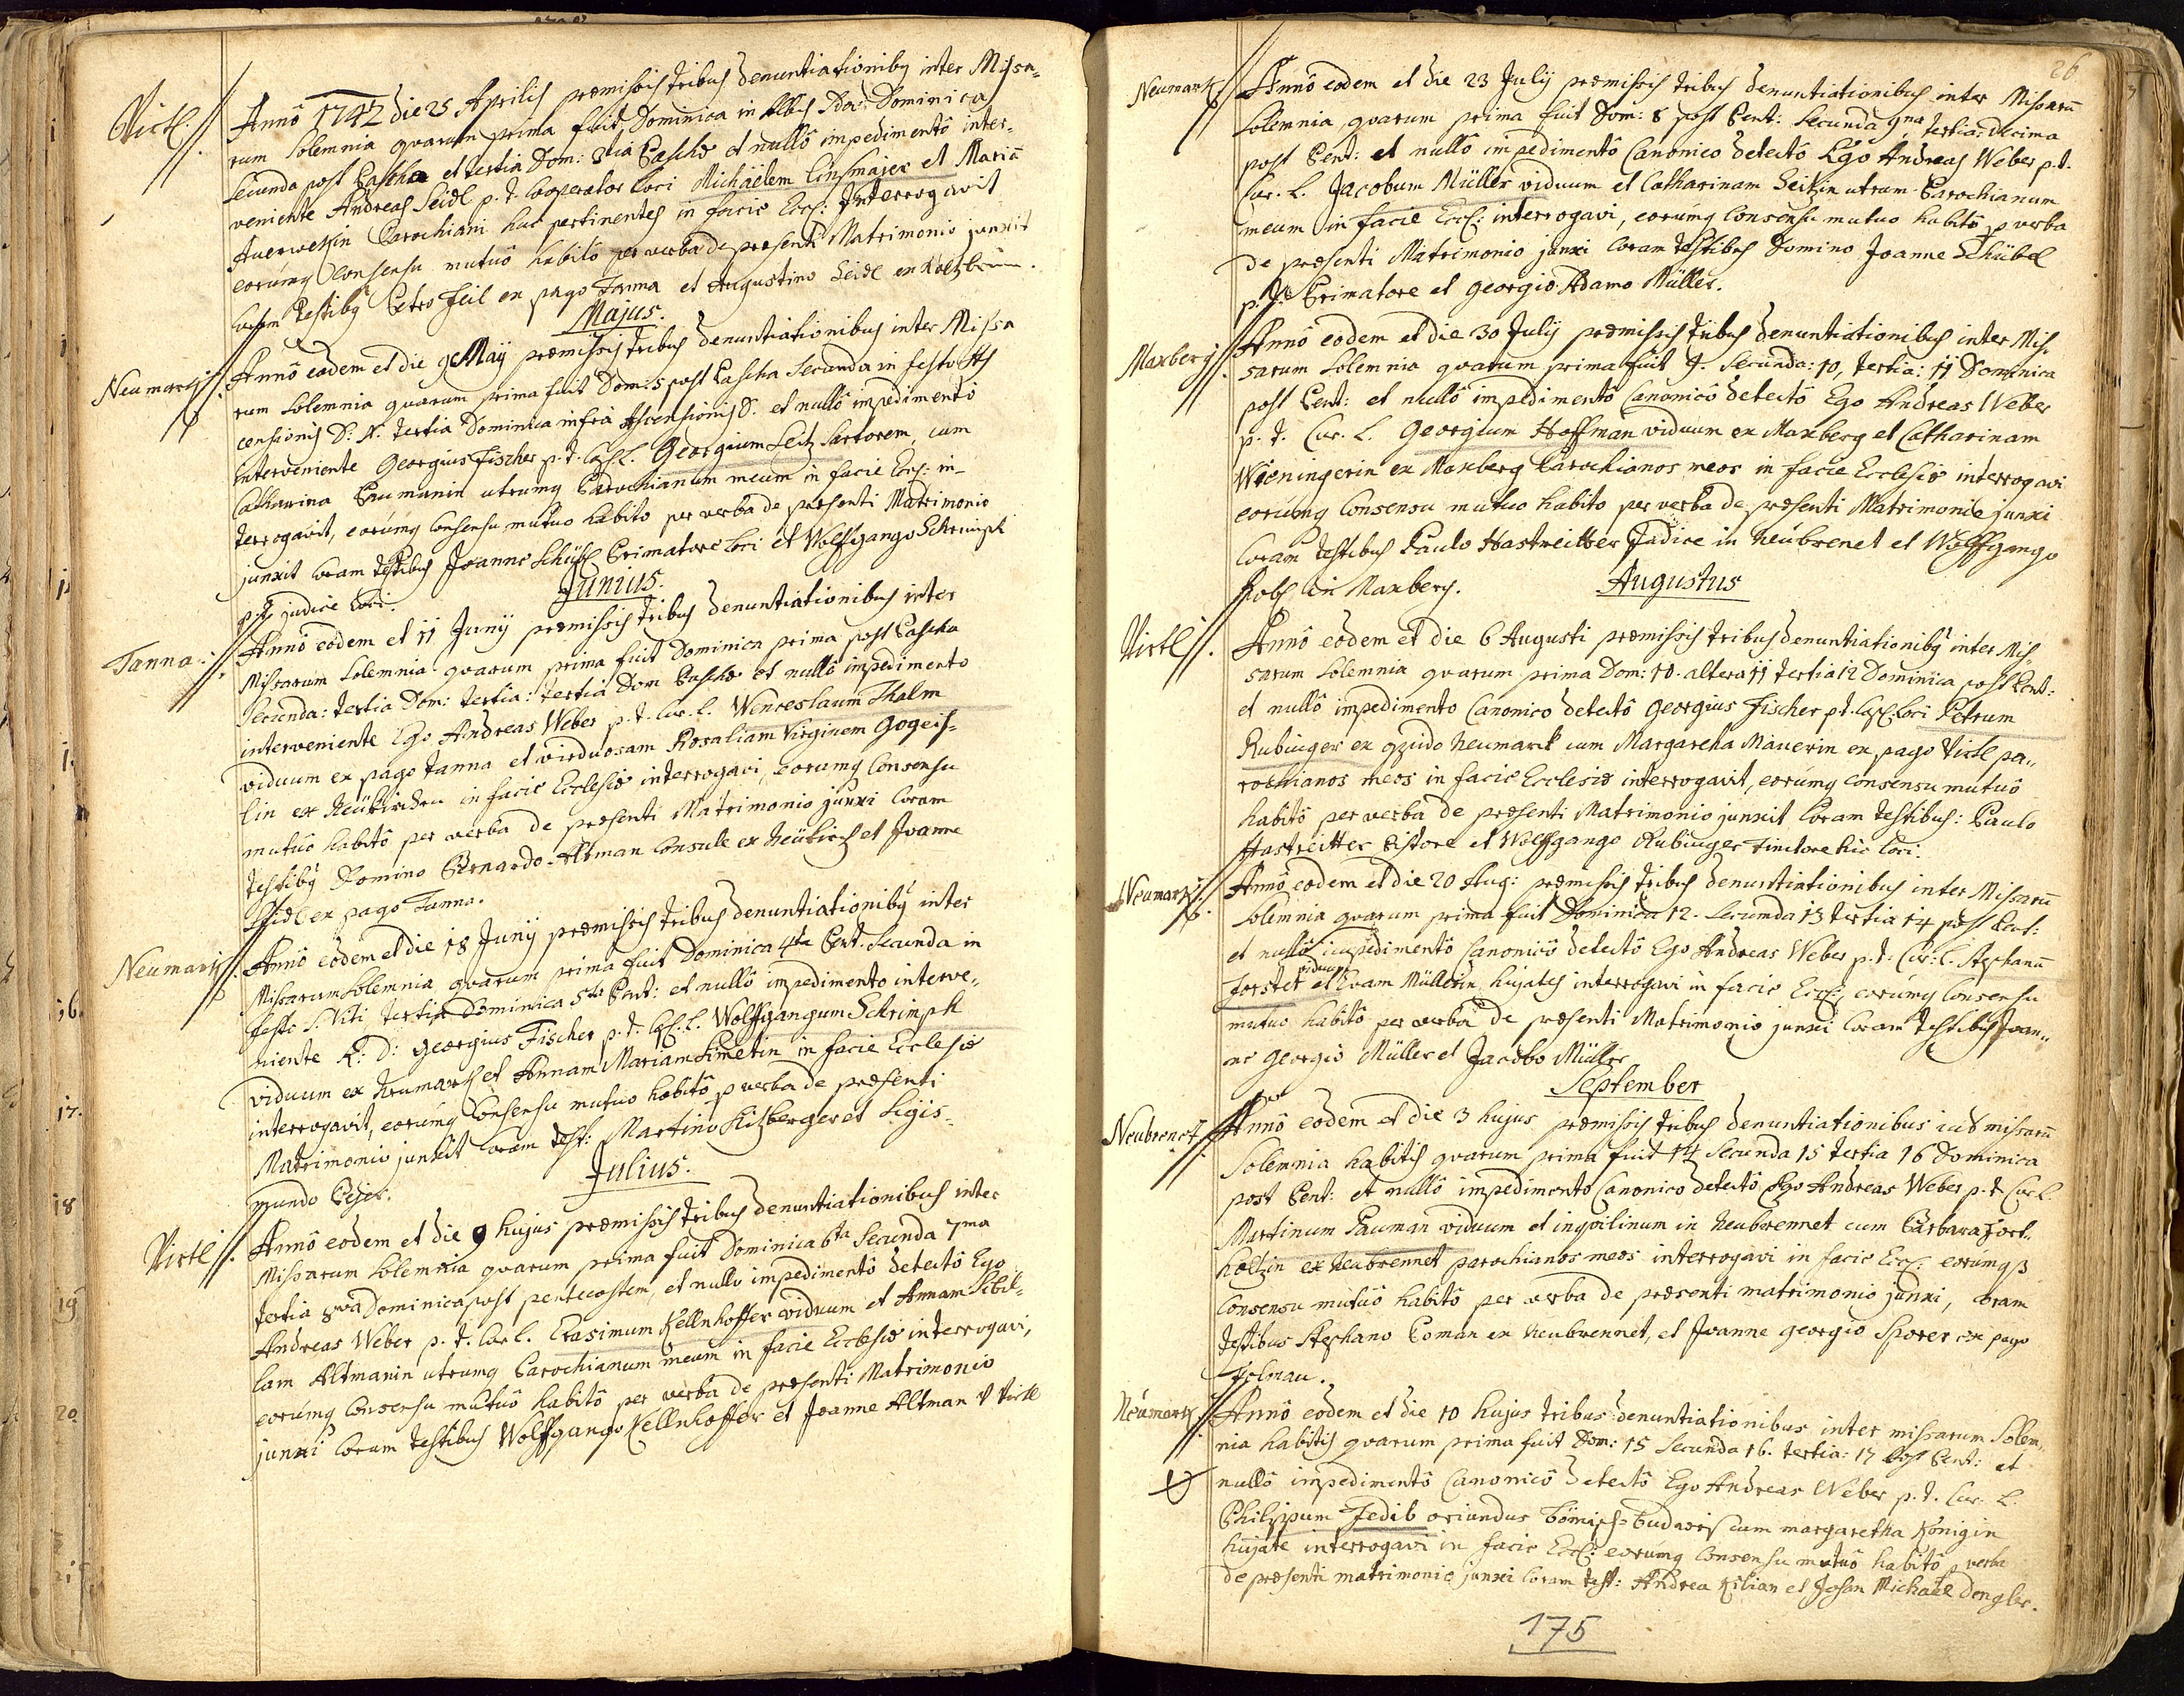 Virtl.
Anno 1742 die 25 Aprilis præmissis tribus denuntiationibq inter Missa-
rum Solemnia quarum prima fuit Dominica in Albis 2da Dominica
Secunda post Pascha et tertia Dom: 3tia Paschæ et nullô impedimentô inter-
veniente Andreas Seidl p. t. Cooperator Loci Michaëlem Linsmajer et Mariā
Auerwekin Parochiani huc pertinentes in facie Eccl: Interrogavit
eorumq Consensu mutuô habitô per verba de præsenti Matrimonio junxit
Coram Testibq Petro Feil ex pago Tanna et Augustino Seidl ex
Majus.
Neumark
Anno eodem et die 9 Maij præmissis tribus denuntiationibus inter Missa
rum Solemnia quarum prima fuit Dom: 5 post Pascha Secunda in festo As
censionis D: N. tertia Dominica infra Ascensionis D. et nullô impedimentô
interveniente Georgius Fischer p. t. Cap. L. Georgium Seitz Sartorem, cum
Catharina Paumanin utrumq Parochianum meum in facie Eccl: in-
terrogavit, eorumq Consensu mutuo habito per verba de præsenti Matrimonio
junxit Coram testibus Joanne Schübl Primatore Loci et Wolfgango Schrimpf
p. t. judice Loci.
Junius.
Tanna.
Anno eodem et 11 Junij præmissis tribus denuntiationibus inter
Missarum Solemnia quarum prima fuit Dominica prima post Pascha
Secunda: tertia Dom: tertia: tertia Dom Paschæ et nullô impedimento
interveniente Ego Andreas Weber p. t. Cur. L. Wenceslaum Thalm
viduum ex pago Tanna et virduosam Rosaliam Virginem Gogeis-
lin ex Neükirchen in facie Ecclesiæ interrogavi, eorumq Consensu
mutuô habitô per verba de præsenti Matrimonio junxi Coram
testibq Domino Bernardo Altman Consule ex Neükirch et Joanne
Seidl ex pago Tanna.
Neumark
Anno eodem et die 18 Junij præmissis tribus denuntiationibq inter
Missarum Solemnia quarum prima fuit Dominica 4ta Pent. Secunda in
festo S. Viti tertia Dominica 5ta Pent: et nullô impedimento interve-
niente R: D: Georgius Fischer p. t. Cap. L. Wolffgangum Schrimpf
viduum ex Neumark et Annam Mariam Simetin in facie Ecclesiæ
interrogavit, eorumq Consensu mutuo habitô p verba de præsenti
Matrimonio junxit Coram test: Martino Hizberger et Sigis-
mundo Pejer.
Julius.
Virtl
Anno eodem et die 9 hujus præmissis tribus denuntiationibus inter
Missarum Solemnia quarum prima fuit Dominica 6ta Secunda 7ma
tertia 8va Dominica post pentecostem, et nullo impedimentô detectô Ego
Andreas Weber p. t. Cur L. Erasimum Kellnhoffer viduum et Annam Sibil-
lam Altmanin utrumq Parochianum meum in facie Ecclesiæ interrogavi,
eorumq Consensu mutuô habitô per verba de præsenti Matrimonio
junxi Coram testibus Wolffgango Kellnhoffer et Joanne Altman v Virtl
26
Neumark
Anno eodem et die 23 Julij præmissis tribus denuntiationibus inter Missarū
Solemnia, quarum prima fuit Dom: 8 post Pent: Secunda 9na, tertia: decima
post Pent: et nullô impedimentô Canonico detectô Ego Andreas Weber p. t.
Cur. L. Jacobum Müller viduum et Catharinam Seitzin utrum Parochianum
meum in facie Eccl: interrogavi, eorumq Consensu mutuo habitô p verba
de præsenti Matrimonio junxi Coram testibus Domino Joanne Schübel
p. t. Primatore et Georgio Adamo Müller.
Maxberg
Anno eodem et die 30 Julij præmissis tribus denuntiationibus inter Mis-
sarum Solemnia quarum prima fuit 9. Secunda: 10, tertia: 11 Dominica
post Pent: et nullô impedimentô Canonicô detectô Ego Andreas Weber
p. t. Cur. L. Georgium Hoffman viduum ex Maxberg et Catharinam
Wieningerin ex Maxberg Parochianos meos in facie Ecclesiæ interrogavi
eorumq Consensu mutuo habito per verba de præsenti Matrimonio junxi
Coram testibus Paulo Hastreitter Judice in Neubrenet et Wolffgango
in Maxberg.
Augustus
Virtl
Anno eodem et die 6 Augusti præmissis tribus denuntiationibq inter Mis-
sarum Solemnia quarum prima Dom: 10. altera 11 tertia 12 Dominica post Pent:
et nullô impedimento Canonico detectô Georgius Fischer p t. Cap. Loci Petrum
Rubinger ex opido Neumarck cum Margaretha Mauerin ex pago Virtl pa-
rochianos meos in facie Ecclesiæ interrogavit, eorumq Consensu mutuô
habitô per verba de præsenti Matrimonio junxit Coram testibus: Paulo
Hastreitter Pistore et Wolffgango Rubinger Tinctore hic Loci.
Neumark
Anno eodem et die 20 Aug: præmissis tribus denuntiationibus inter Missarū
Solemnia quarum prima fuit Dominica 12. Secunda 13 tertia 14 post Pent:
et nullô impedimentô Canonicô detectô Ego Andreas Weber p. t. Cur. L. Stephanū
viduum
Forster et Evam Müllerin, hujates interrogavi in facie Eccl:, eorumq Consensu
mutuo habitô per verba de præsenti Matrimonio junxi Coram testibus Joan-
ne Georgio Müller et Jacobo Müller
September
Neubrenet
Anno eodem et die 3 hujus præmissis tribus denuntiationibus int missarū
Solemnia habitis quarum prima fuit 14 Secunda 15 tertia 16 Dominica
post Pent: et nullô impedimento Canonico detectô Ego Andreas Weber p. t. Cur L.
Martinum Pauman viduum et inquilinum in Neubrennet cum Barbara Forl-
holtzin ex Neubrennet parochianos meos interrogavi in facie Eccl: eorumqȝ
Consensu mutuô habitô per verba de præsenti matrimonio junxi, Coram
testibus Stephano Poman ex Neubrennet, et Joanne Georgio Sporer ex pago
Neumark
Anno eodem et die 10 hujus tribus denuntiationibus inter missarum Solem-
nia habitis quarum prima fuit Dom: 15 Secunda 16. tertia: 17 post Pent: et
nullô impedimentô Canonicô detectô Ego Andreas Weber p. t. Cur. L.
Philippum Fedib oriundus Bömisch-Budweis cum margaretha Königin
hujate interrogavi in facie Eccl: eorumq Consensu mutuô habitô p verba
de præsenti matrimonio junxi Coram test: Andrea Kilian et Johan Michael Dengler.
175